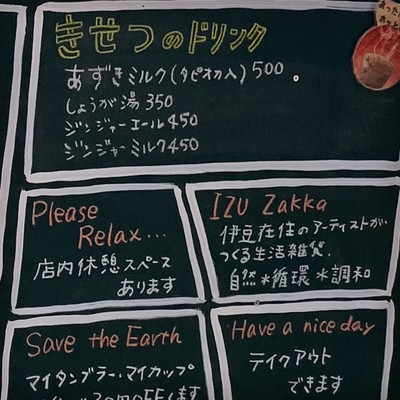 きせつのドリンク
あずきミルク(タピオカ入)500。
しょうが湯350
ジンジャーエール450
ジンジャーミルク450
Please
Relax...
店内休憩スペース
あります
IZU Zakka
伊豆在住のアーティストが
つくる生活雑貨.
自然*循環*調和
Save the Earth
マイタンブラー・マイカップ
Have a nice day
テイクアウト
できます